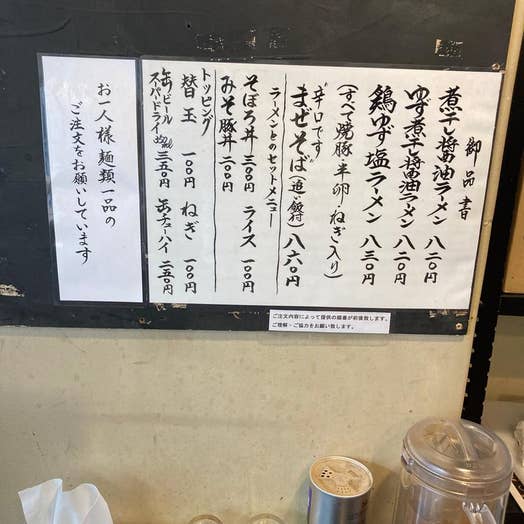 御品書
煮干し醤油ラーメン 八二〇円
ゆず煮干し醤油ラーメン 八二〇円
鶏ゆず塩ラーメン 八三〇円
(すべて焼豚・半卵・ねぎ入り)
"辛口です"
まぜそば(追い飯付) 八六〇円
ラーメンとのセットメニュー
そぼろ丼 三〇〇円 ライス 一〇〇円
みそ豚丼 二〇〇円
トッピング
替玉 一〇〇円 ねぎ 一〇〇円
缶ビール
スーパードライ 三五〇円 缶チューハイ 二五〇円
お一人様麺類一品の
ご注文をお願いしています
ご注文内容によって提供の順番が前後致します。
ご理解・ご協力をお願い致します。